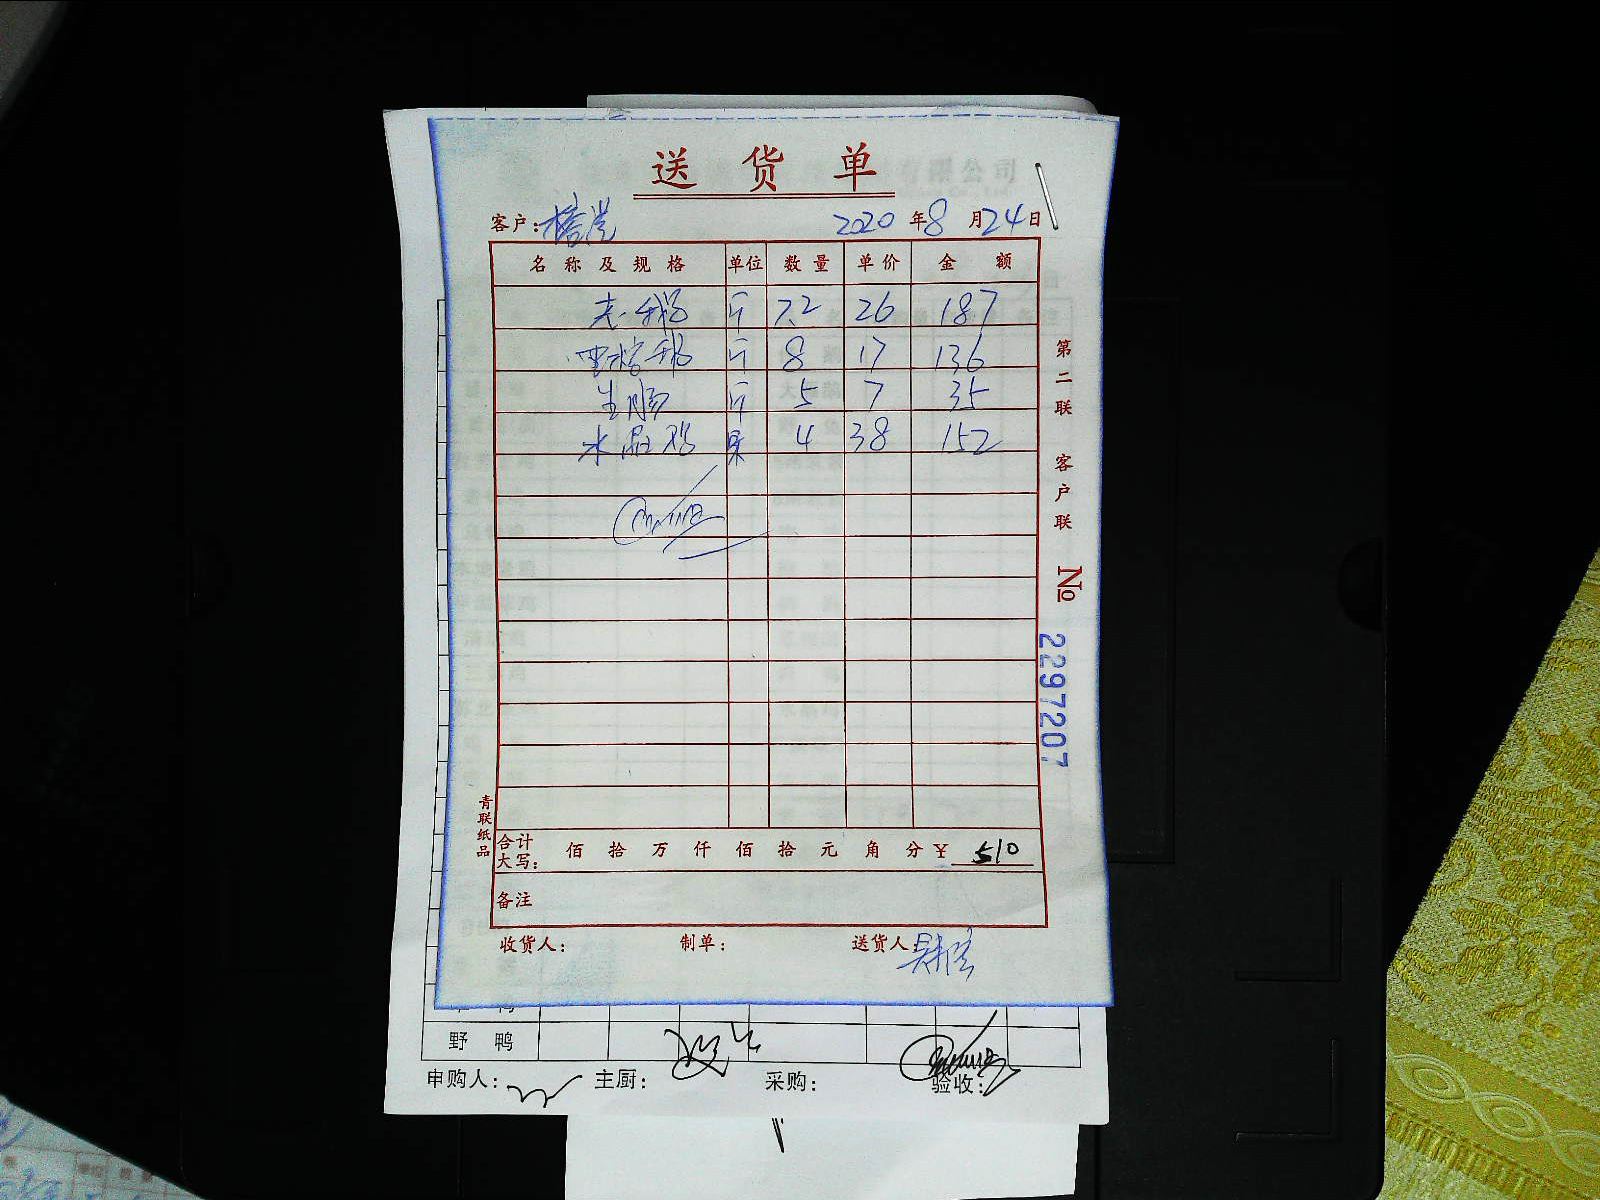 送货单
客户: 2020年8月24日
名称及规格 单位 数量 单价 金额
老鹅 斤 7.2 26 187
斤 8 17 136
生肠 斤 5 7 35
水晶鸡 4 38 152
合计大写: 佰 拾 万 仟 佰 拾 元 角 分 ¥ 510
备注
收货人: 制单: 送货人:
第二联 客户联 № 2297207
青联纸品
野鸭
申购人: 主厨: 采购: 验收: